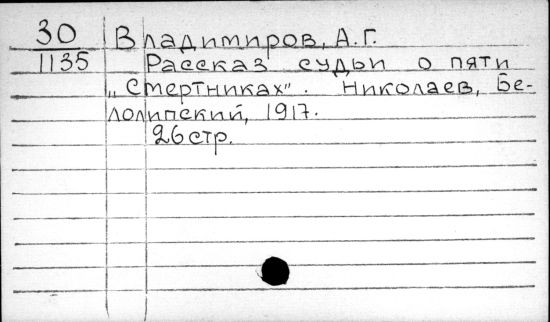 30 Владимиров, А.Г.
1135 Рассказ судьи о пяти
„Смертниках". Николаев, Бе-
лолипский, 1917.
26 стр.